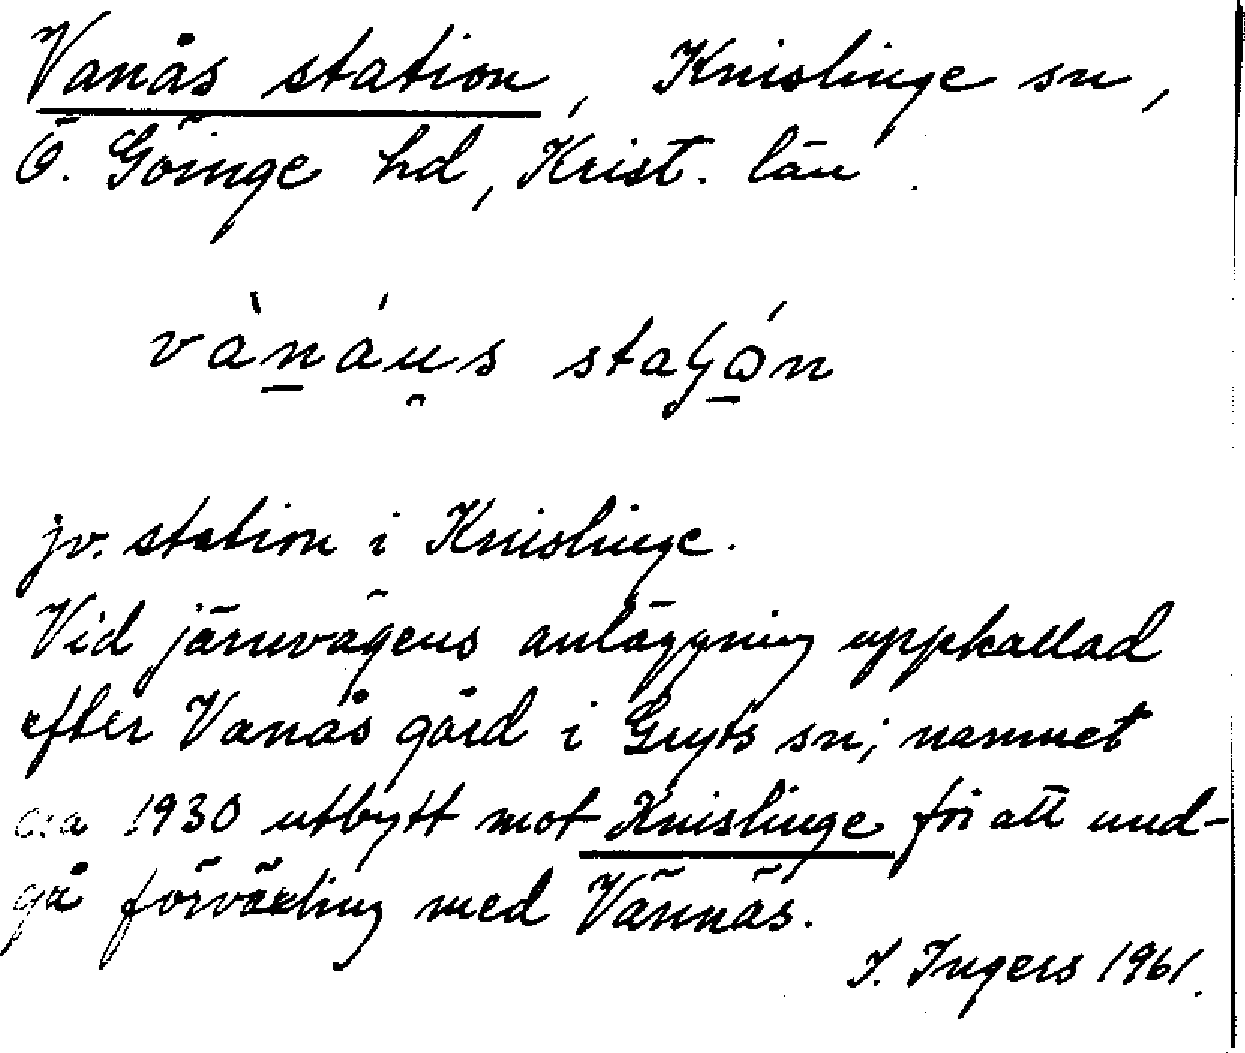 Vanås station, Knislinge sn,
Ö. Göinge hd, Krist. län.
vànáu̯s staʃǿn
jv. station i Knislinge.
Vid järnvägens anläggning uppkallad
efter Vanås gård i Gryts sn; namnet
ca 1930 utbytt mot Knislinge för att und-
gå förväxling med Vännäs.
I. Ingers 1961.